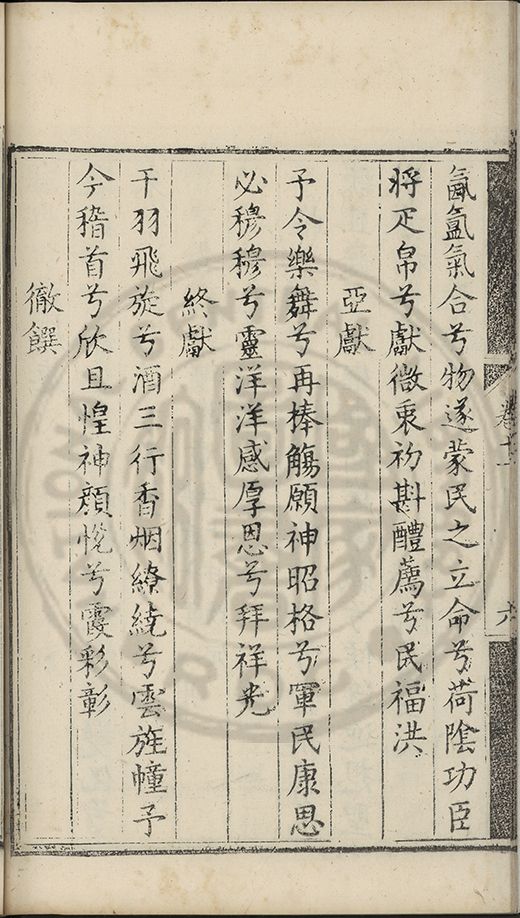 氤氳氣合兮物遂蒙民之立命兮荷陰功臣
將疋帛兮獻微衷初斟醴薦兮民福洪
亞獻
予令樂舞兮再捧觴願神昭格兮軍民康思
必穆穆兮靈洋洋感厚恩兮拜祥光
終獻
干羽飛旋兮酒三行香烟繚繞兮雲旌幢予
今稽首兮欣且惶神顏悅兮霞彩彰
徹饌
六